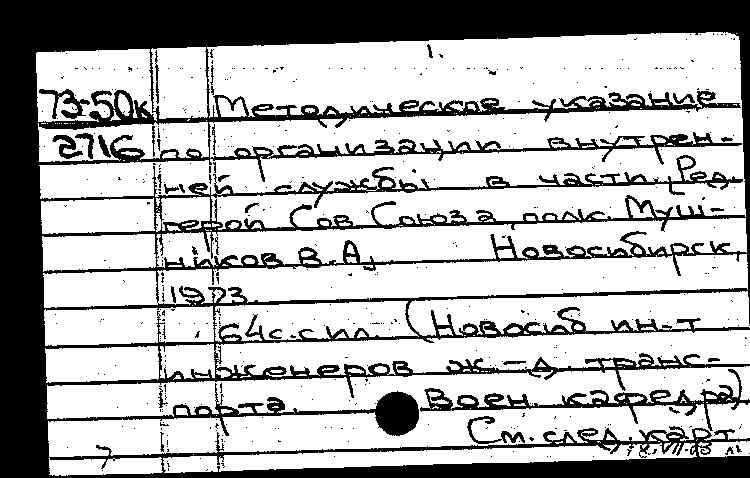 1.
73-50к Методическое указание
2716 по организации внутрен-
ней службы в части. [Ред.
герой Сов Союза полк. Муш-
ников В.А.] Новосибирск,
1973.
64с.с ил. (Новосиб ин-т
инженеров ж.-д. транс-
порта. Воен. кафедра)
См. след. карт